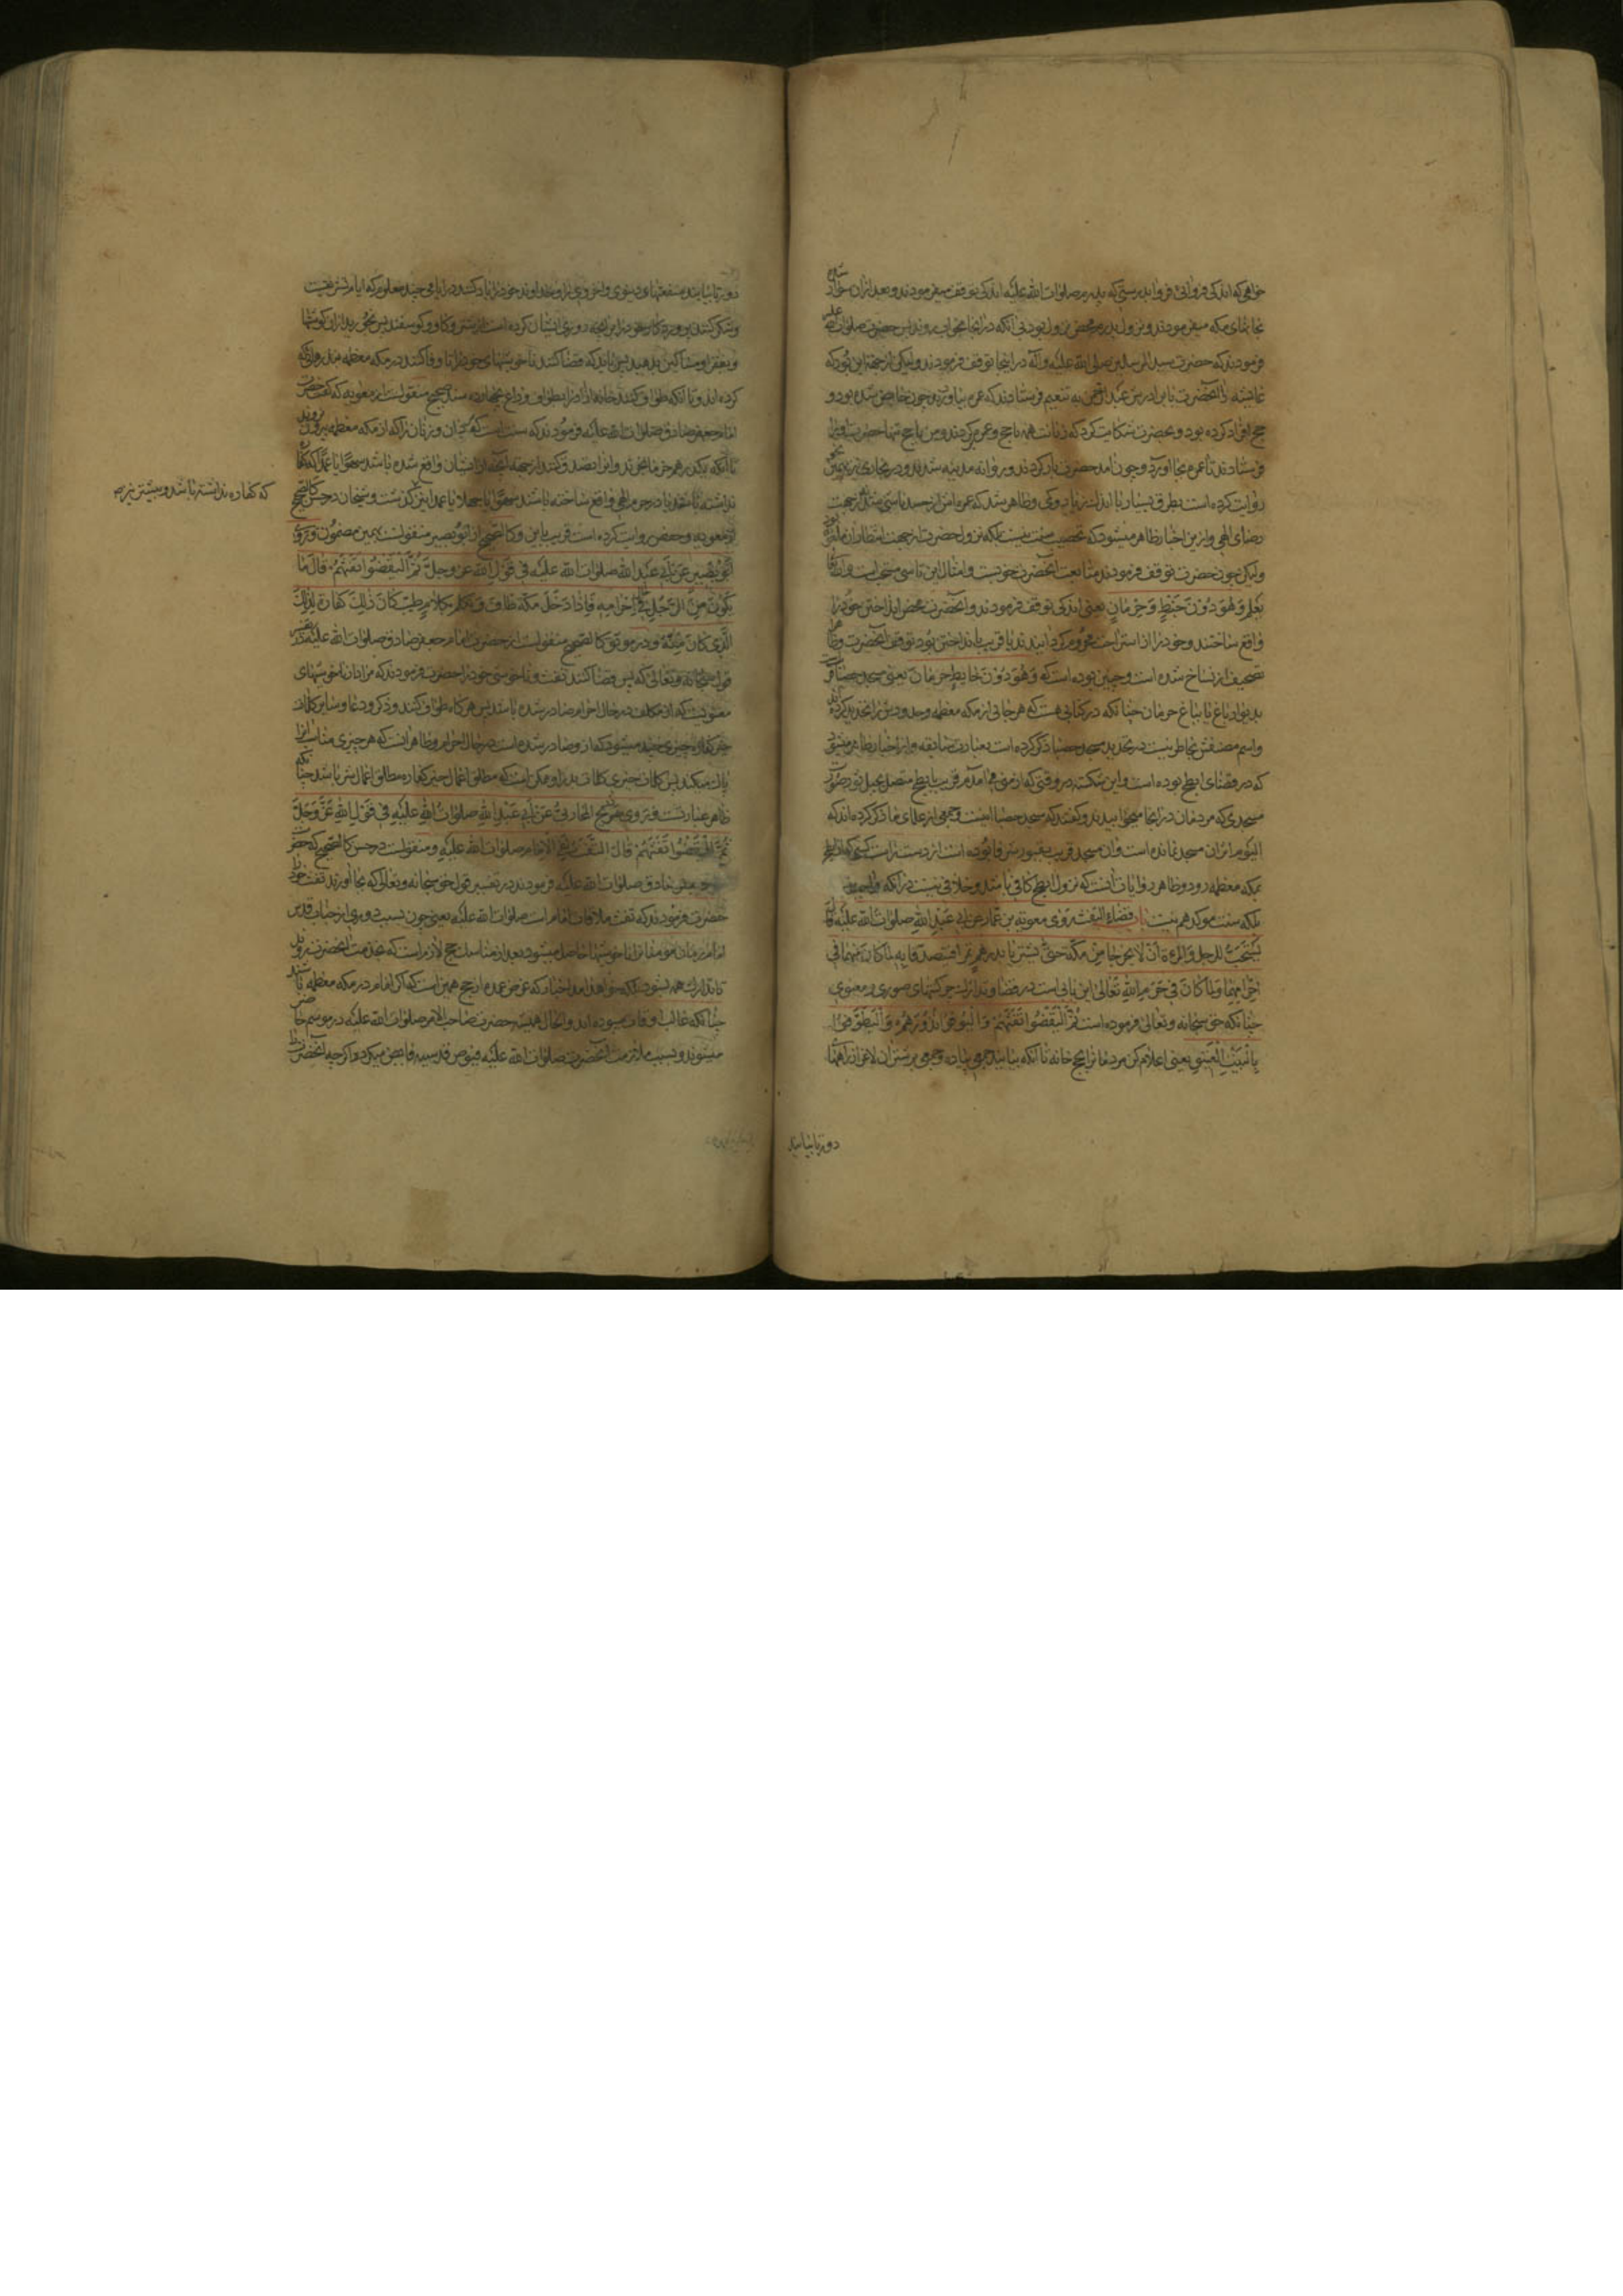 خواهی که اندکی فروآئی فروآ بدرستی که پدرم صلوات الله علیه اندکی توقف میفرمودند و بعد از آن سوار
بجانب مکه میفرمودند و نزول پدرم محض نزول بود بی آنکه در آنجا بخواب روند پس حضرت صلوات الله علیه
فرمودند که حضرت سید المرسلین صلی الله علیه وآله در آنجا توقف فرمودند ولیکن از جهة این بود که
عایشه را آنحضرت با برادرش عبد الرحمن به تنعیم فرستادند که عمره بیاورد چون حایض شده بود و
حج افراد کرده بود و بحضرت شکایت کرد که زنانت همه با حج و عمره برگردند و من با حج تنها
فرستادند تا عمره بجا آورد و چون آمد حضرت بار کردند و روانه مدینه شدند و در بخاری نیز
روایت کرده است بطرق بسیار با اندک زیادوکمی و ظاهر شد که عمره
رضای الهی و ازین اخبار ظاهر میشود که تحصیب سنت نیست بلکه نزول حضرت از جهت انتظار
ولیکن چون حضرت توقف فرمودند متابعت آنحضرت خوبست و امثال این تاسی مستحب است والله
یعلم وَهُوَ دُونَ خَبْطٍ وَحِرْمَانٍ یعنی اندکی توقف فرمودند و آنحضرت محض انداختن خود را
واقع ساختند و خود را از استراحت محروم گردانیدند یا قریب باند اختن بود توقف آنحضرت و ظاهرا
تصحیف از نساخ شده است و چنین بوده است که وَهُوَ دُونَ حَایِطِ حرمان یعنی مسجد حصبا
بدیوار باغ یا بباغ حرمان چنانکه در کتابی هست که هر جائی از مکه معظمه و حدودش را تحدید کرده
واسم مصنفش بخاطر نیست در تحدید مسجد حصبا ذکر کرده است بعبارت سابقه و از اخبار ظاهر میشود
که در فضای ابطح بوده است و این شکسته در وقتی که از منی می آمدم قریب بابطح متصل بجبل نور صورت
مسجدی که مردمان در آنجا میخوابیدند و گفتند که مسجد حصبا اینست و جمعی از علمای ما ذکر کرده اند که
الیوم از آن مسجد نمانده است و آن مسجد قریب بقبور شرفا بوده است از دست راست کسی که از ابطح
بمکه معظمه رود و ظاهر روایات آنست که نزول ابطح کافی باشد و خلافی نیست در آنکه واجب نیست
بلکه سنت موکد هم نیست باب قضاء التفث روی معویة بن عمار عن ابی عبد الله صلوات الله علیه قال
یُسْتَحَبُّ للرجل والمرءة أن لا یخرجا من مکة حتی یشتریا بدرهم تمرا فیتصدقا به لما کان منهما فی
احرامهما ولما کان فی حرم الله تعالی این بابی است در قضا و تدارک چرکهای صوری و معنوی
چنانکه حق سبحانه وتعالی فرموده است ثُمَّ لْیَقْضُوا تَفَثَهُمْ وَلْیُوفُوا نُذُورَهُمْ وَلْیَطَّوَّفُوا
بِالْبَیْتِ الْعَتِیقِ یعنی اعلام کن مردمانرا بحج خانه تا آنکه بیایند جمعی پیاده و جمعی بر شتران لاغر از راههای
دور تا بیابند
دور تا بیابند منفعتهای دینوی واخروی را و خداوند خود را یاد کنند در ایامی چند معلوم که ایام تشریقست
و شکر کنند پروردگار خود را بر آنچه روزی ایشان کرده است از شتر و گاو و گوسفند پس بخورید از آن گوشتها
و بفقرا و مساکین بدهید پس باید که قضا کنند ناخوشیهای خود را تا وفا کنند در مکه معظمه بنذر
کرده اند و تا آنکه طواف کنند خانه آزاد را بطواف وداع بسند صحیح منقولست از معویه که گفت حضرت
امام جعفر صادق صلوات الله علیه فرمودند که سنت است که مردان و زنان را که از مکه معظمه بیرون نروند
تا آنکه یکدرهم خرما بخرند و آنرا تصدق کنند از جهة آنچه از ایشان واقع شده باشد سهوا یا عمدا که کفاره
نداشته باشد یا در حرم الهی واقع ساخته باشند سهوا یا جهلا یا عمدا و شیخان در حسن کالصحیح
که کفاره نداشته باشد و بیشتر نیز
از معویه و حفص روایت کرده است قریب باین و کالصحیح از ابو بصیر منقولست بهمین مضمون وروی
أبو بصیر عن ابی عبد الله صلوات الله علیه فی قول الله عز وجل ثُمَّ لْیَقْضُوا تَفَثَهُمْ قال ما
یکون من الرجل فی احرامه فاذا دخل مکة طاف وتکلم بکلام طیب کان ذلک کفارة لذلک
الذی کان منه و در موثق کالصحیح منقولست از حضرت امام جعفر صادق صلوات الله علیه در تفسیر
قول سبحانه وتعالی که پس قضا کنند تفث و ناخوشی خود را حضرت فرمودند که مراد از ناخوشیهای
معنویست که از مکلف در حال احرام صادر شده باشد پس هرگاه طواف کنند و ذکر و دعا و سایر کلمات
خیر کفاره چیزی چند میشود که از و صادر شده است در حال احرام و ظاهر آنست که هر چیزی مناسب آنرا
پاک میکند پس کلمات خیر کلمات بد را و ممکن است که مطلق اعمال خیر کفاره مطلق اعمال شر باشد چنانکه
ظاهر عبارتست وروی ذریح المحاربی عن ابی عبد الله صلوات الله علیه فی قول الله عز وجل
ثُمَّ لْیَقْضُوا تَفَثَهُمْ قال التفث لقاء الامام صلوات الله علیه و منقولست در حسن کالصحیح که حضرت
جعفر صادق صلوات الله علیه فرمودند در تفسیر قول حق سبحانه وتعالی که بجا آورند تفث خود را
حضرت فرمودند که تفث ملاقات امام است صلوات الله علیه یعنی چون بسبب دوری از جناب قدس
امام زمان مومنانرا ناخوشیها حاصل میشود بعد از مناسک حج لازمست که بخدمت آنحضرت روند
تا تدارک همه بشود بلکه اخبار که غرض عمده از حج همین است که اگر امام در مکه معظمه باشند
چنانکه غالب اوقات میبوده اند والحال همیشه حضرت صاحب الامر صلوات الله علیه در موسم حاضر
میشوند و بسبب ملازمت آنحضرت صلوات الله علیه فیوض قدسیه فایض میگردد اگر چه آنحضرت را